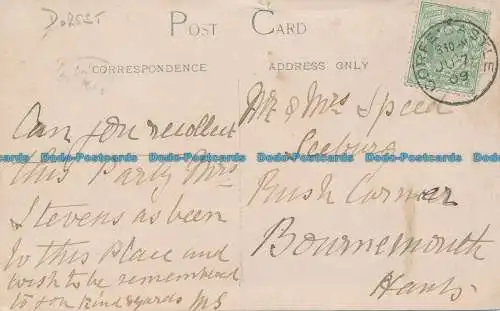 DORSET
POST CARD
CORRESPONDENCE
ADDRESS ONLY
CORFE CASTLE
JU 7
09
Can you recollect
this Party Mrs
Stevens as been
to this Place and
wish to be remembered
to you Kind regards MS
Mr & Mrs Speed
Rush Corner
Bournemouth
Hants
Dodo-Postcards Dodo-Postcards Dodo-Postcards Dodo-Postcards Dodo-Postcards Dodo-Postcards